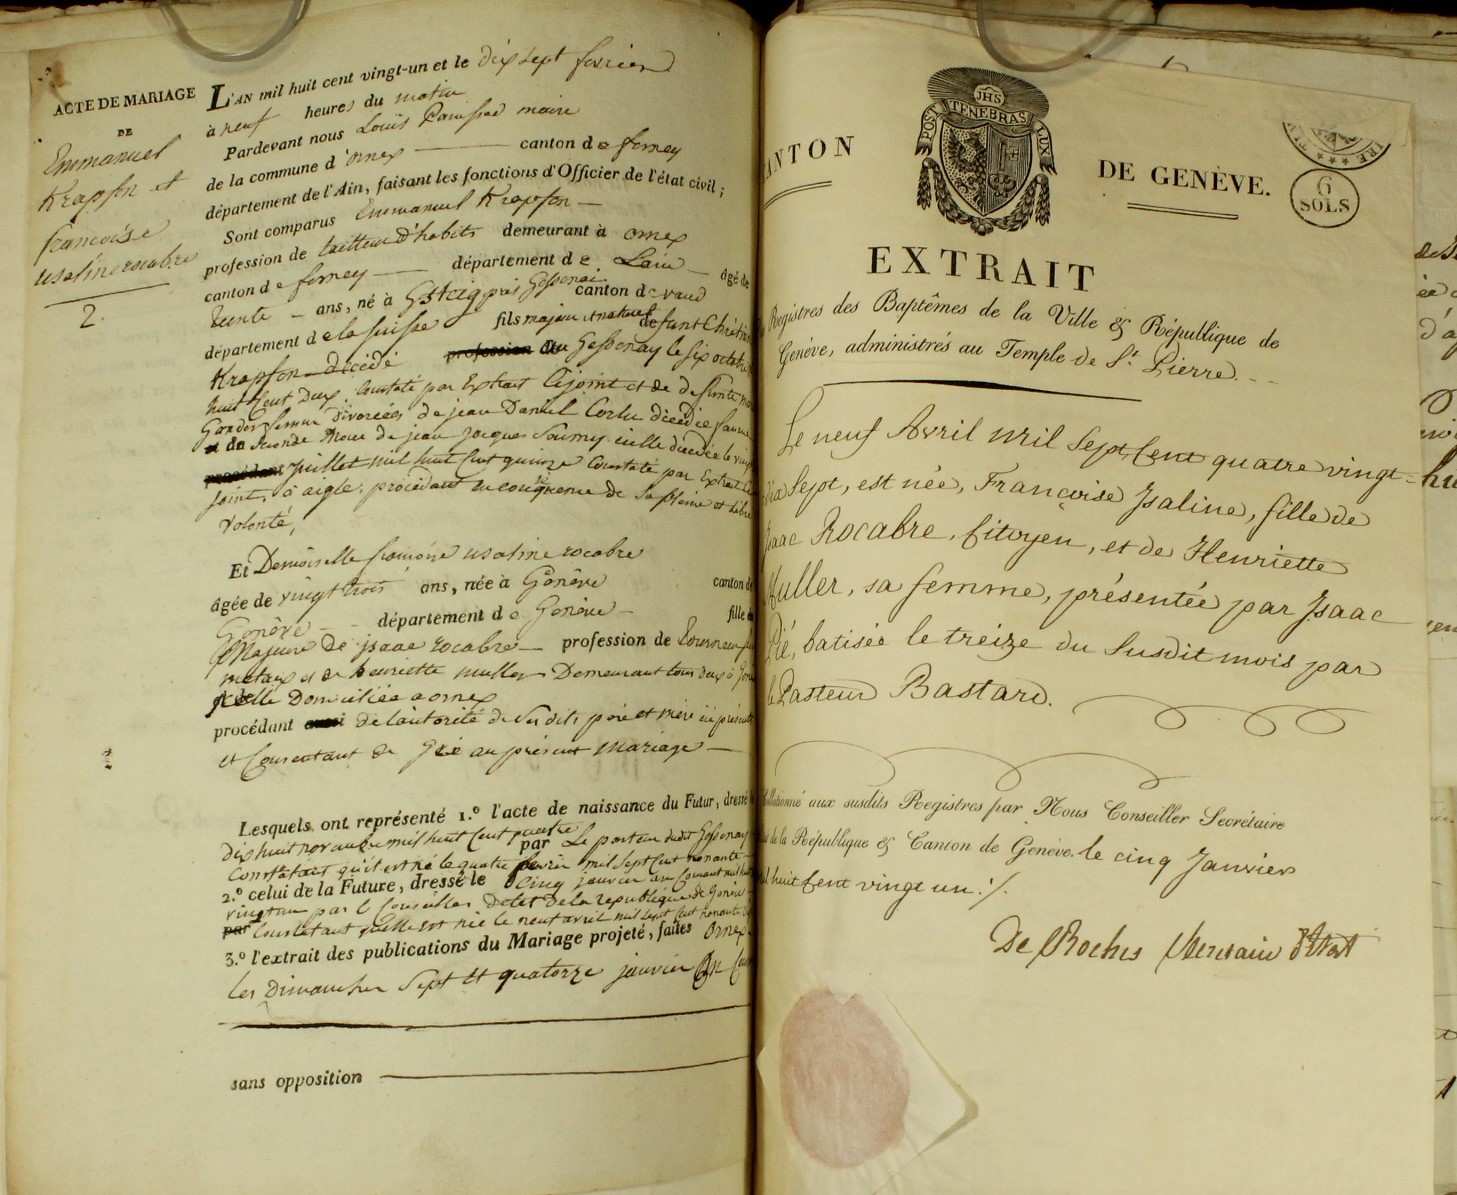 ACTE DE MARIAGE
DE
Emmanuel
Krapfon et
francoise
usaline rocabre
2.
L'AN mil huit cent vingt-un et le dix sept fevrier
à neuf heures du matin
Pardevant nous Louis maire
de la commune d'ornex canton de ferney
département de l'Ain, faisant les fonctions d'Officier de l'état civil;
Sont comparus Emmanuel Krapfon
profession de tailleur d'habits demeurant à ornex
canton de ferney département de Lain âgé de
trente ans, né à Gsteig près Gessenai canton de vaud
département de la suisse fils majeur et naturel de
Krapfon décédé profession au Gessenay le six octobre
huit Cent deux, Constaté par Extrait Cijoint et de defunte
femme divorcée de jean Daniel décédée
de Seconde Noce de jean jacques icelle décédée le
juillet mil huit Cent quinze Constaté par Extrait
joint, à aigle, procédant en consequence de sa pleine et libre
volonté,
Et Demoiselle francoise usaline rocabre
âgée de vingt trois ans, née à Genève canton de
Genève département de Genève fille
Majeure de isaac rocabre profession de
metaux et de henriette muller Demeurant tous deux à
icelle Domiciliée a ornex
procédant aussi de l'autorité de ses dits père et mère ici présents
et Consentant de Gré au présent mariage
Lesquels ont représenté 1.º l'acte de naissance du Futur, dressé
dix huit novembre mil huit Cent quatre par Le pasteur dudit Gessenay
Constatant qu'il est né le quatre fevrier mil sept Cent nonante
2.º celui de la Future, dressé le cinq janvier an Courant mil huit
vingt un par le Conseiller detat de la republique de Genève
par Constatant qu'elle est née le neuf avril mil sept Cent nonante
3.º l'extrait des publications du Mariage projeté, faites Ornex
les dimanches sept et quatorze janvier
sans opposition
CANTON DE GENÈVE.
JHS
POST TENEBRAS LUX
6
SOLS
EXTRAIT
Registres des Baptêmes de la Ville & République de
Genève, administrés au Temple de St. Pierre.
Le neuf Avril mil Sept Cent quatre vingt=
dix Sept, est née, Françoise Isaline, fille de
Isaac Rocabre, Citoyen, et de Henriette
Muller, sa femme, présentée par Isaac
Pié, batisée le treize du Susdit mois par
le Pasteur Bastard.
Collationné aux susdits Registres par Nous Conseiller Secrétaire
de la République & Canton de Genève. le cinq Janvier
mil huit Cent vingt un ./.
De Roches Secretaire d'Etat